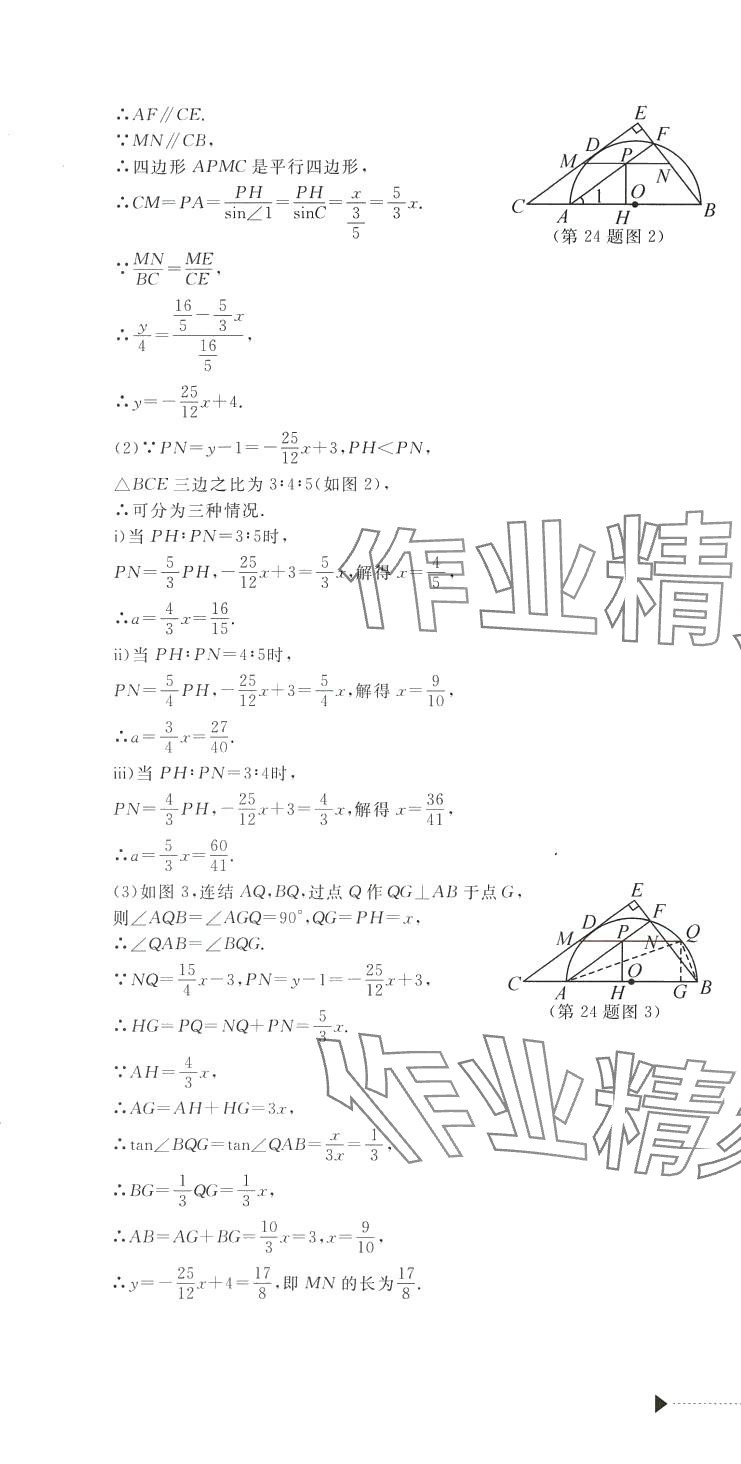 ∴AF∥CE.
∵MN∥CB,
∴四边形 APMC 是平行四边形,
∴CM=PA=PH/sin∠1=PH/sinC=x/(3/5)=5/3x.
∵MN/BC=ME/CE,
∴y/4=(16/5-5/3x)/(16/5),
∴y=-25/12x+4.
E
D
F
M
P
N
C
A
1
H
O
B
(第 24 题图 2)
(2)∵PN=y-1=-25/12x+3,PH<PN,
△BCE 三边之比为 3∶4∶5(如图 2),
∴可分为三种情况.
ⅰ)当 PH∶PN=3∶5时,
PN=5/3PH,-25/12x+3=5/3x,解得 x=4/5,
∴a=4/3x=16/15.
ⅱ)当 PH∶PN=4∶5时,
PN=5/4PH,-25/12x+3=5/4x,解得 x=9/10,
∴a=3/4x=27/40.
ⅲ)当 PH∶PN=3∶4时,
PN=4/3PH,-25/12x+3=4/3x,解得 x=36/41,
∴a=5/3x=60/41.
(3)如图 3,连结 AQ,BQ,过点 Q 作 QG⊥AB 于点 G,
则∠AQB=∠AGQ=90°,QG=PH=x,
∴∠QAB=∠BQG.
∵NQ=15/4x-3,PN=y-1=-25/12x+3,
∴HG=PQ=NQ+PN=5/3x.
∵AH=4/3x,
∴AG=AH+HG=3x,
∴tan∠BQG=tan∠QAB=x/3x=1/3,
∴BG=1/3QG=1/3x,
∴AB=AG+BG=10/3x=3,x=9/10,
∴y=-25/12x+4=17/8,即 MN 的长为17/8.
E
D
F
M
P
N
Q
C
A
H
O
G
B
(第 24 题图 3)
作业精
作业精